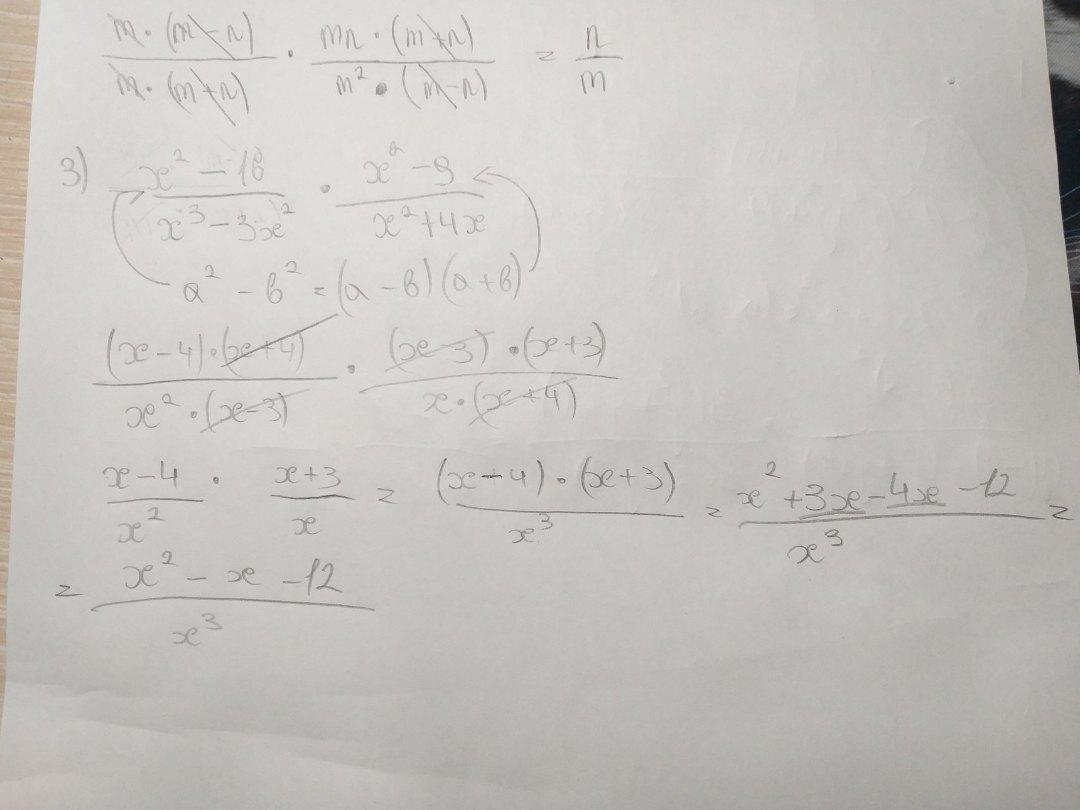 m·(m-n)/m·(m+n) · mn·(m+n)/m²·(m-n) = n/m
3) x²-16/x³-3x² · x²-9/x²+4x
a²-b²=(a-b)(a+b)
(x-4)·(x+4)/x²·(x-3) · (x-3)·(x+3)/x·(x+4)
x-4/x² · x+3/x = (x-4)·(x+3)/x³ = x²+3x-4x-12/x³ =
= x²-x-12/x³